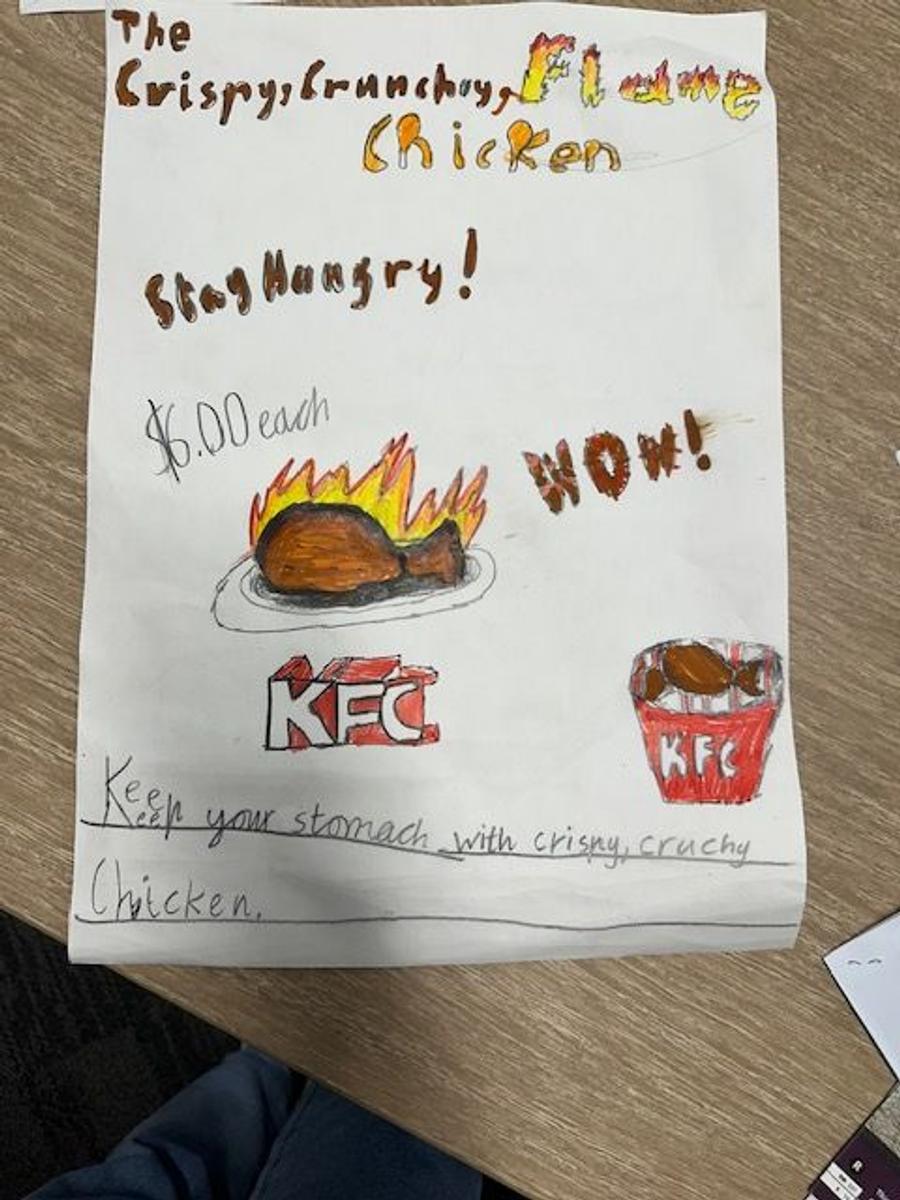 The
Crispy, Crunchoy, Flame
Chicken
Stay Hungry!
$6.00 each
WOW!
KFC
KFC
Keep your stomach with crispy, cruchy
Chicken.